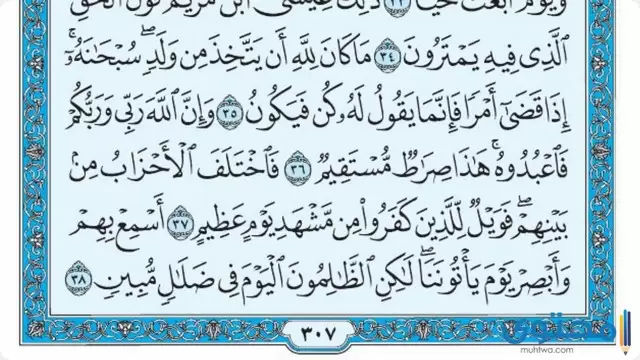 وَيَوْمَ أُبْعَثُ حَيًّا ٣٣ ذَٰلِكَ عِيسَى ابْنُ مَرْيَمَ قَوْلَ الْحَقِّ
الَّذِي فِيهِ يَمْتَرُونَ ٣٤ مَا كَانَ لِلَّهِ أَن يَتَّخِذَ مِن وَلَدٍ ۖ سُبْحَانَهُ ۚ
إِذَا قَضَىٰ أَمْرًا فَإِنَّمَا يَقُولُ لَهُ كُن فَيَكُونُ ٣٥ وَإِنَّ اللَّهَ رَبِّي وَرَبُّكُمْ
فَاعْبُدُوهُ ۚ هَٰذَا صِرَاطٌ مُّسْتَقِيمٌ ٣٦ فَاخْتَلَفَ الْأَحْزَابُ مِن
بَيْنِهِمْ ۖ فَوَيْلٌ لِّلَّذِينَ كَفَرُوا مِن مَّشْهَدِ يَوْمٍ عَظِيمٍ ٣٧ أَسْمِعْ بِهِمْ
وَأَبْصِرْ يَوْمَ يَأْتُونَنَا ۖ لَٰكِنِ الظَّالِمُونَ الْيَوْمَ فِي ضَلَالٍ مُّبِينٍ ٣٨
٣٠٧
muhtwa.com